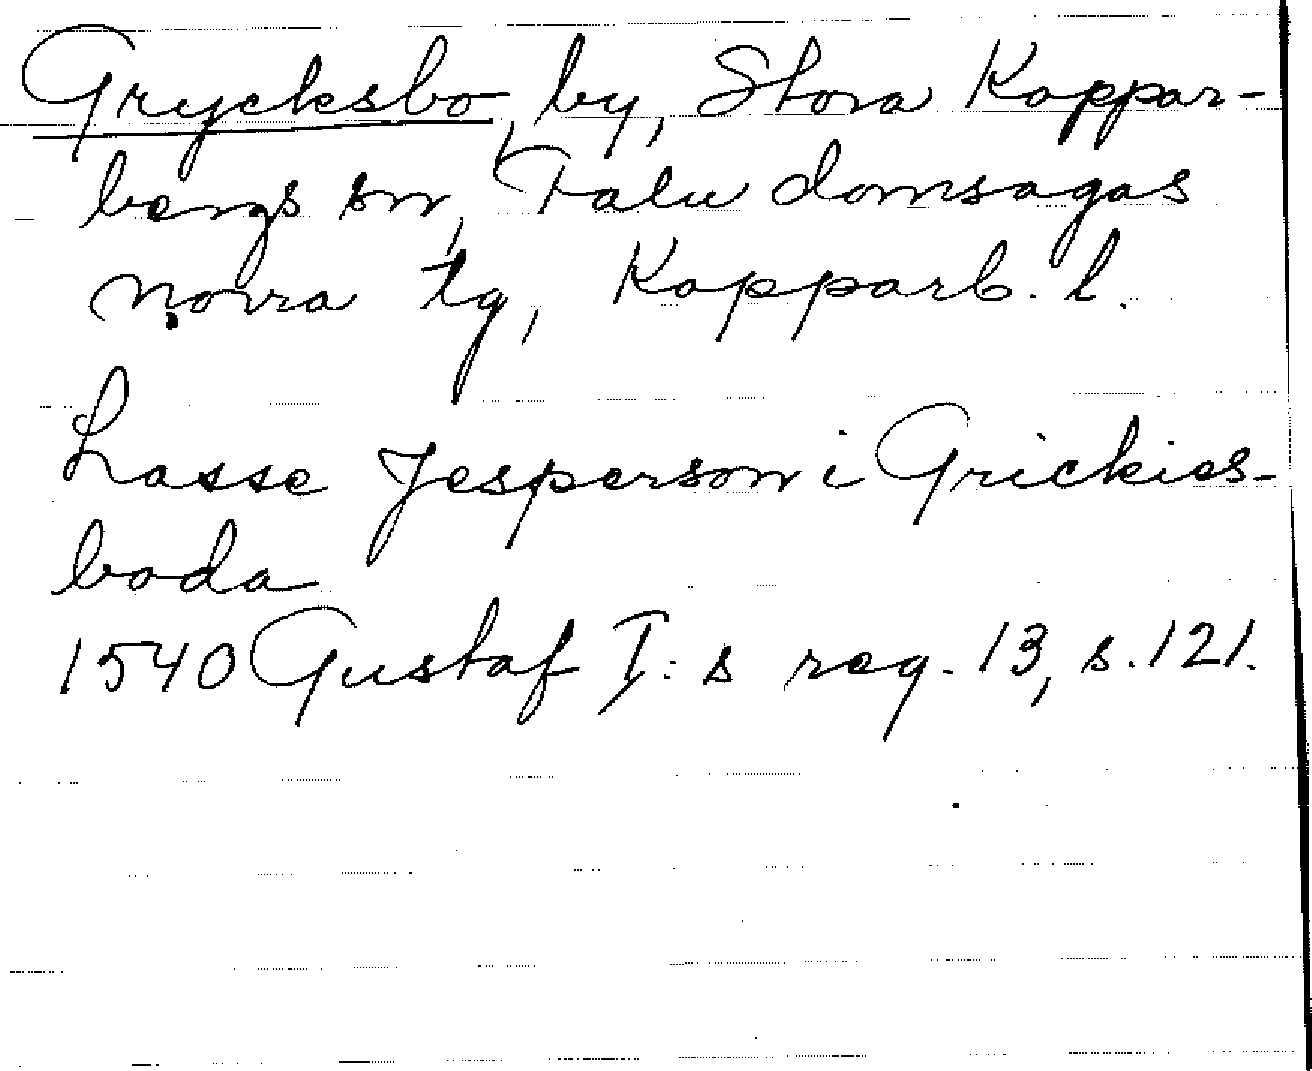 Grycksbo, by, Stora Koppar-
bergs sn, Falu domsagas
norra tg, Kopparb. l.
Lasse Jesperson i Grickies-
boda
1540 Gustaf I:s reg. 13, s. 121.